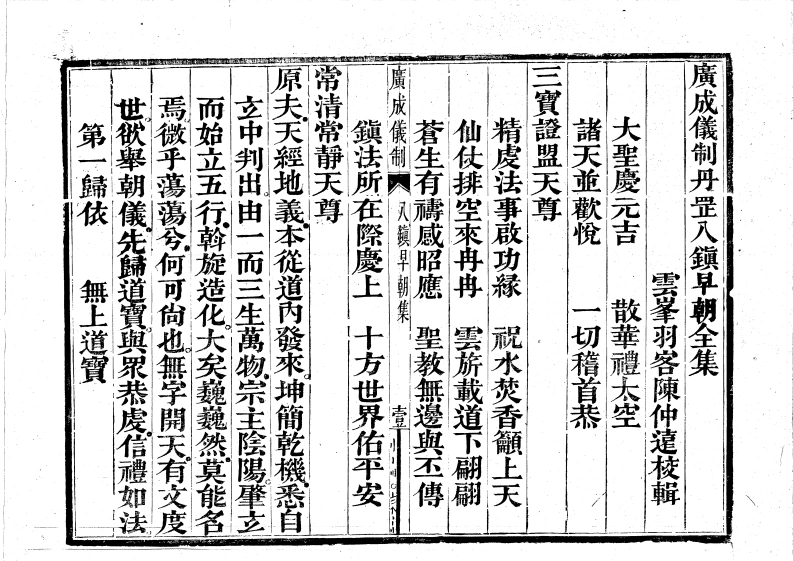 廣成儀制丹罡八鎮早朝全集
雲峯羽客陳仲遠校輯
大聖慶元吉 散華禮太空
諸天並歡悅 一切稽首恭
三寶證盟天尊
精虔法事啟功緣 祝水焚香籲上天
仙仗排空來冉冉 雲旂載道下翩翩
蒼生有禱感昭應 聖教無邊與丕傳
廣成儀制 八鎮早朝集 壹
鎮法所在際慶上 十方世界佑平安
常清常靜天尊
原夫天經地義本從道內發來坤簡乾機悉自
玄中判出由一而三生萬物宗主陰陽肇玄
而始立五行斡旋造化大矣巍巍然莫能名
焉微乎蕩蕩兮何可尙也無字開天有文度
世欲舉朝儀先歸道寶與眾恭虔信禮如法
第一歸依 無上道寶